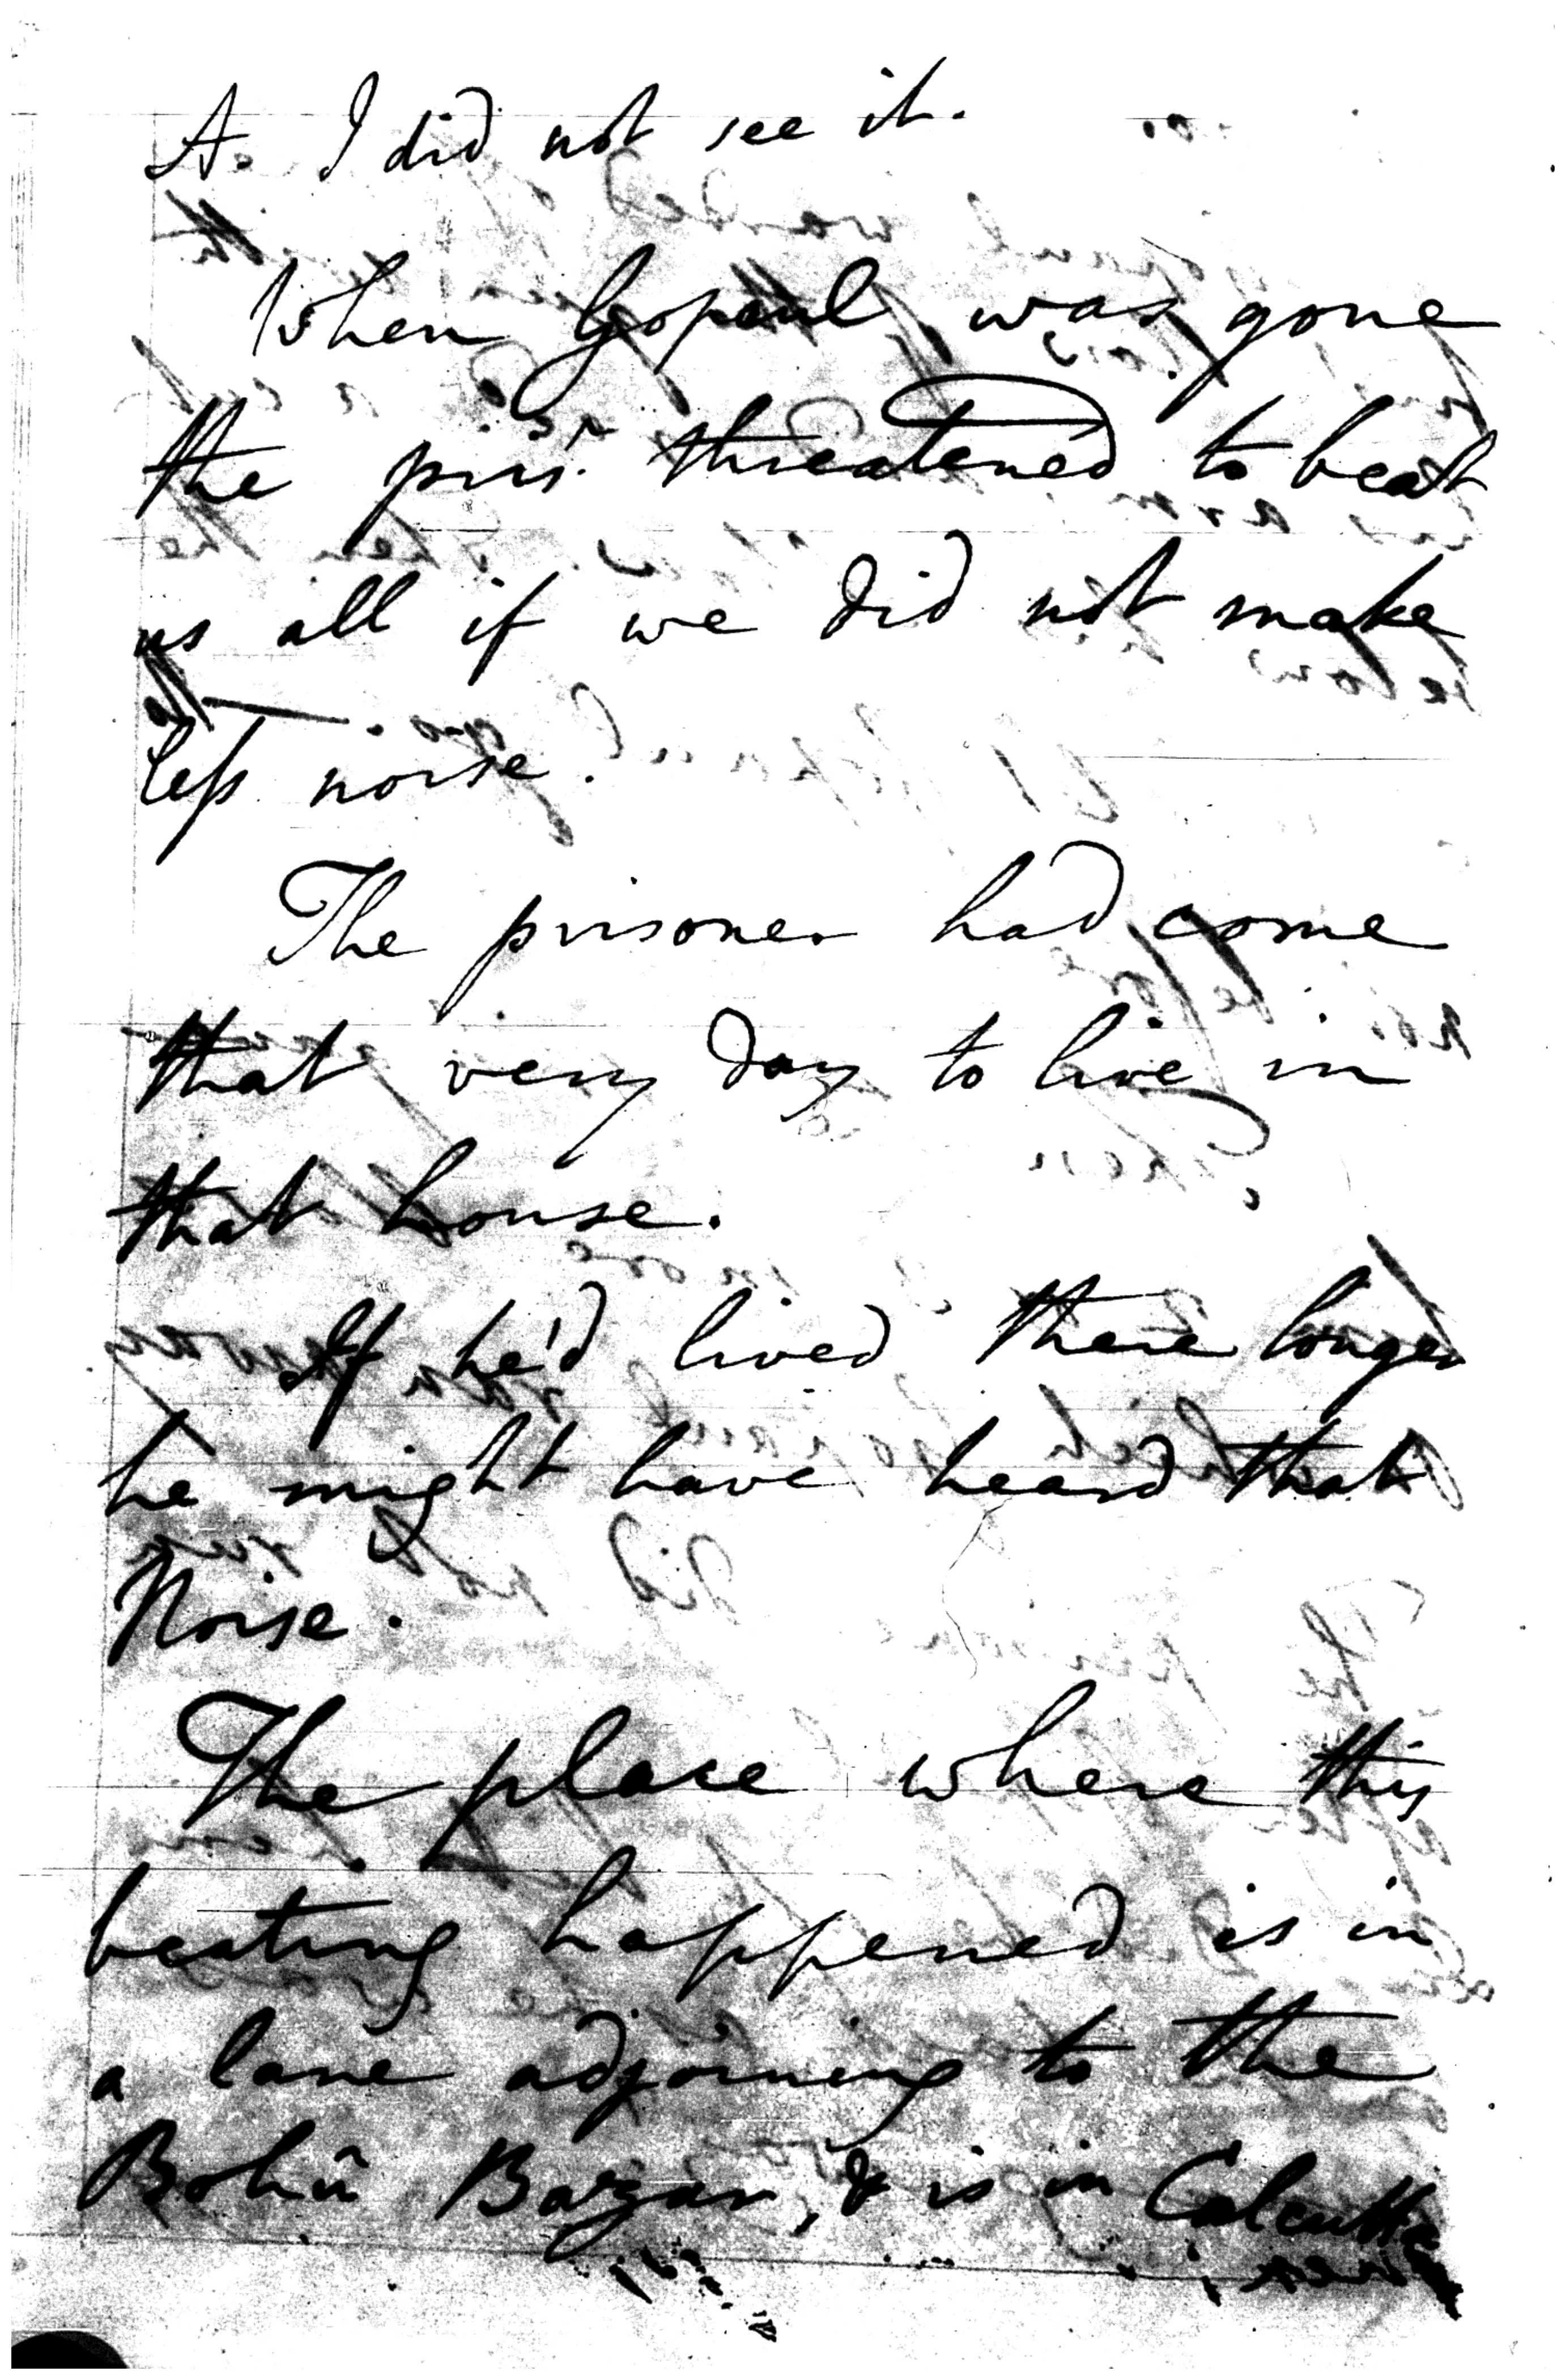 A. I did not see it.
When Gopaul was gone
the pris.r threatened to beat
us all if we did not make
less noise.
The prisoner had come
that very day to live in
that house.
If he'd lived there longer
he might have heard that
Noise.
The place where this
beating happened is in
a lane adjoining to the
Bazar, & is in Calcutta